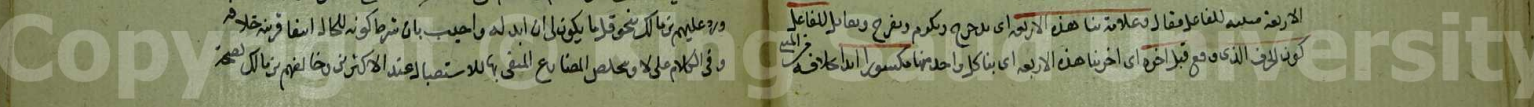 الاربعة مبنية للفاعل فقال وعلامة بناء هذه الاربعة اى يدحرج ويكرم ويفرح ويقاتل للفاعل
كون الحرف الذى وقع قبل اخره اى اخر بناء هذه الاربعة اى بناء كل واحد منها مكسورا ابدا بخلافه
ورد عليهم بن مالك بنحو قل ما يكون لى ان ابدله واجيب بان شرط كونه للحال انتفا قرينة خلافه
وفى الكلام على لا ويخلص المضارع المنفى بها للاستقبال عند الاكثرين وخالفهم بن مالك لصحة
Copy University